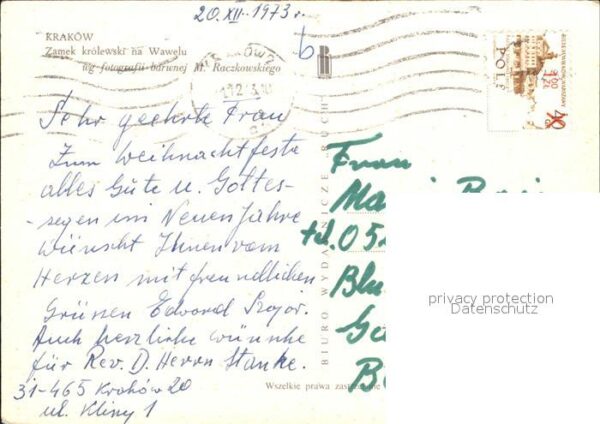 20.XII-1973 r.
KRAKÓW
Zamek królewski na Wawelu
wg fotografii barwnej M. Raczkowskiego
Sehr geehrte Frau
Zum Weihnachtsfeste
alles Gute u. Gottes-
-segen im Neuen Jahre
wünscht Ihnen vom
Herzen mit freundlichen
Grüssen Edward
Auch herzliche wünsche
für Rev. D. Herrn Stanke.
31-465 Kraków 20
ul. Kliny 1
BIURO WYDAWNICZE RUCH
Wszelkie prawa
POLSKA
Frau
tel. 052
Blu
privacy protection
Datenschutz